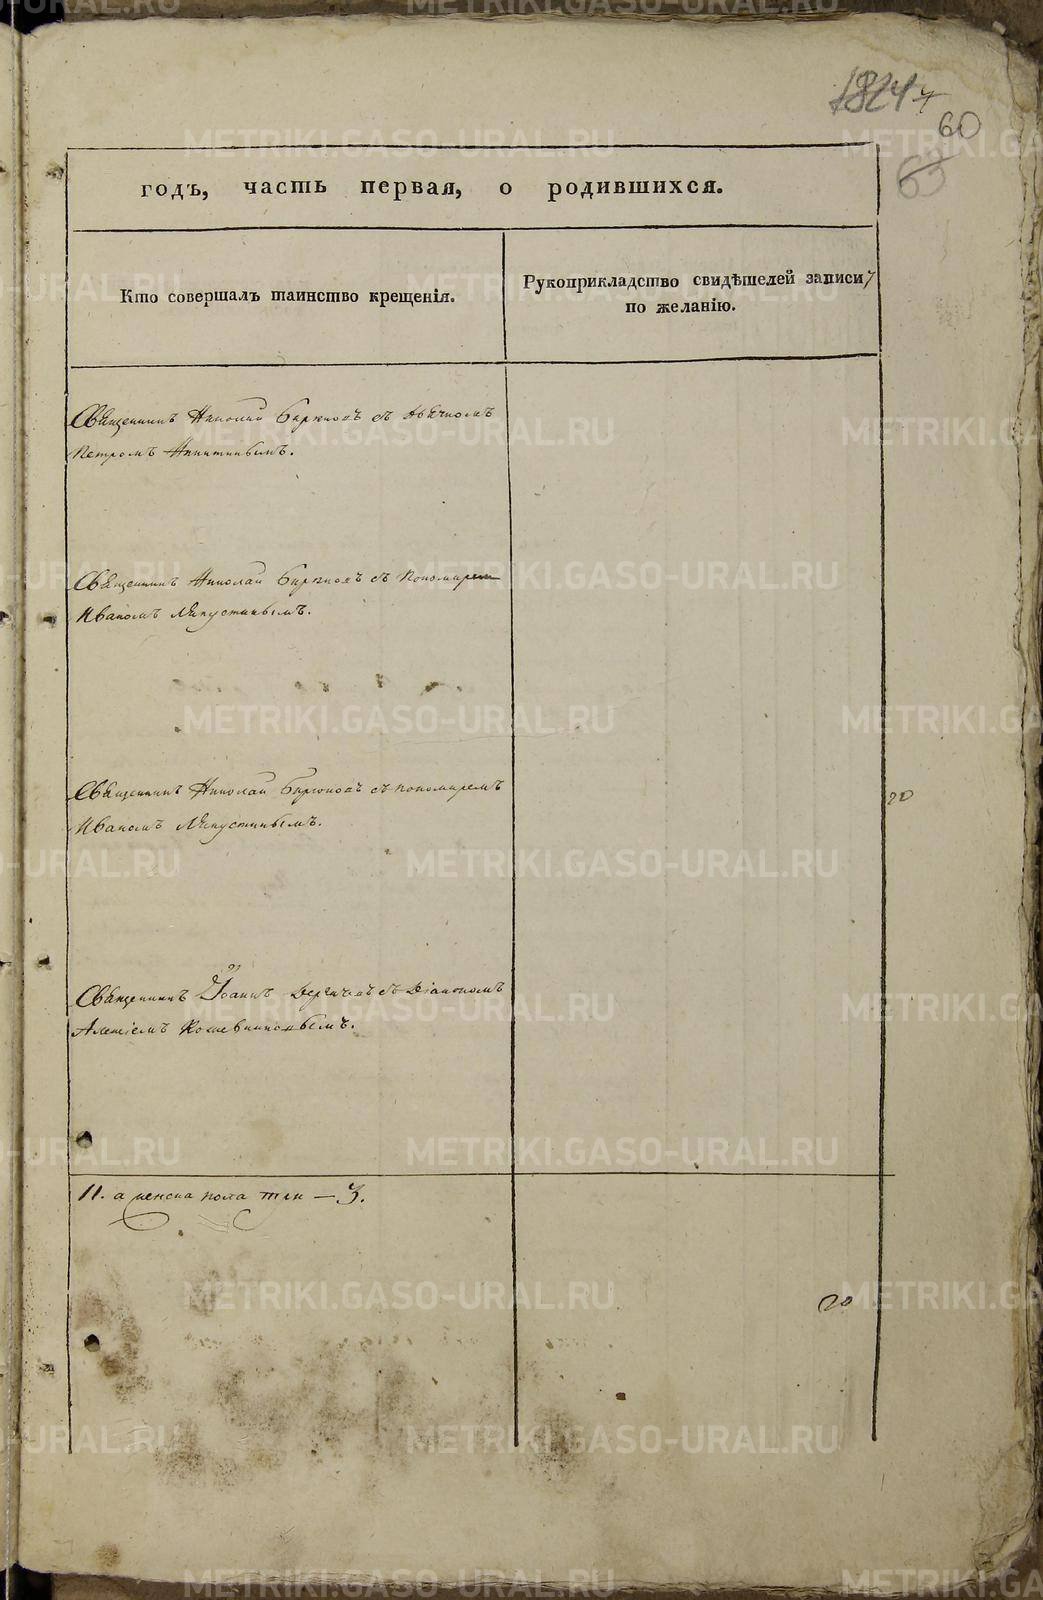 60
63
годъ, часть первая, о родившихся.
Кто совершалъ таинство крещенія.
Рукоприкладство свидѣтелей записи
по желанію.
Священникъ Николай Бирюковъ съ
Петромъ Никитинымъ.
Священникъ Николай Бирюковъ съ Пономарем
Иваномъ Ляпустинымъ.
Священникъ Николай Бирюковъ съ пономаремъ
Иваномъ Ляпустинымъ.
20
Священникъ Іоаннъ съ Діакономъ
Алексіемъ Кожевниковымъ.
11. а женска пола три — 3.
20
METRIKI.GASO-URAL.RU